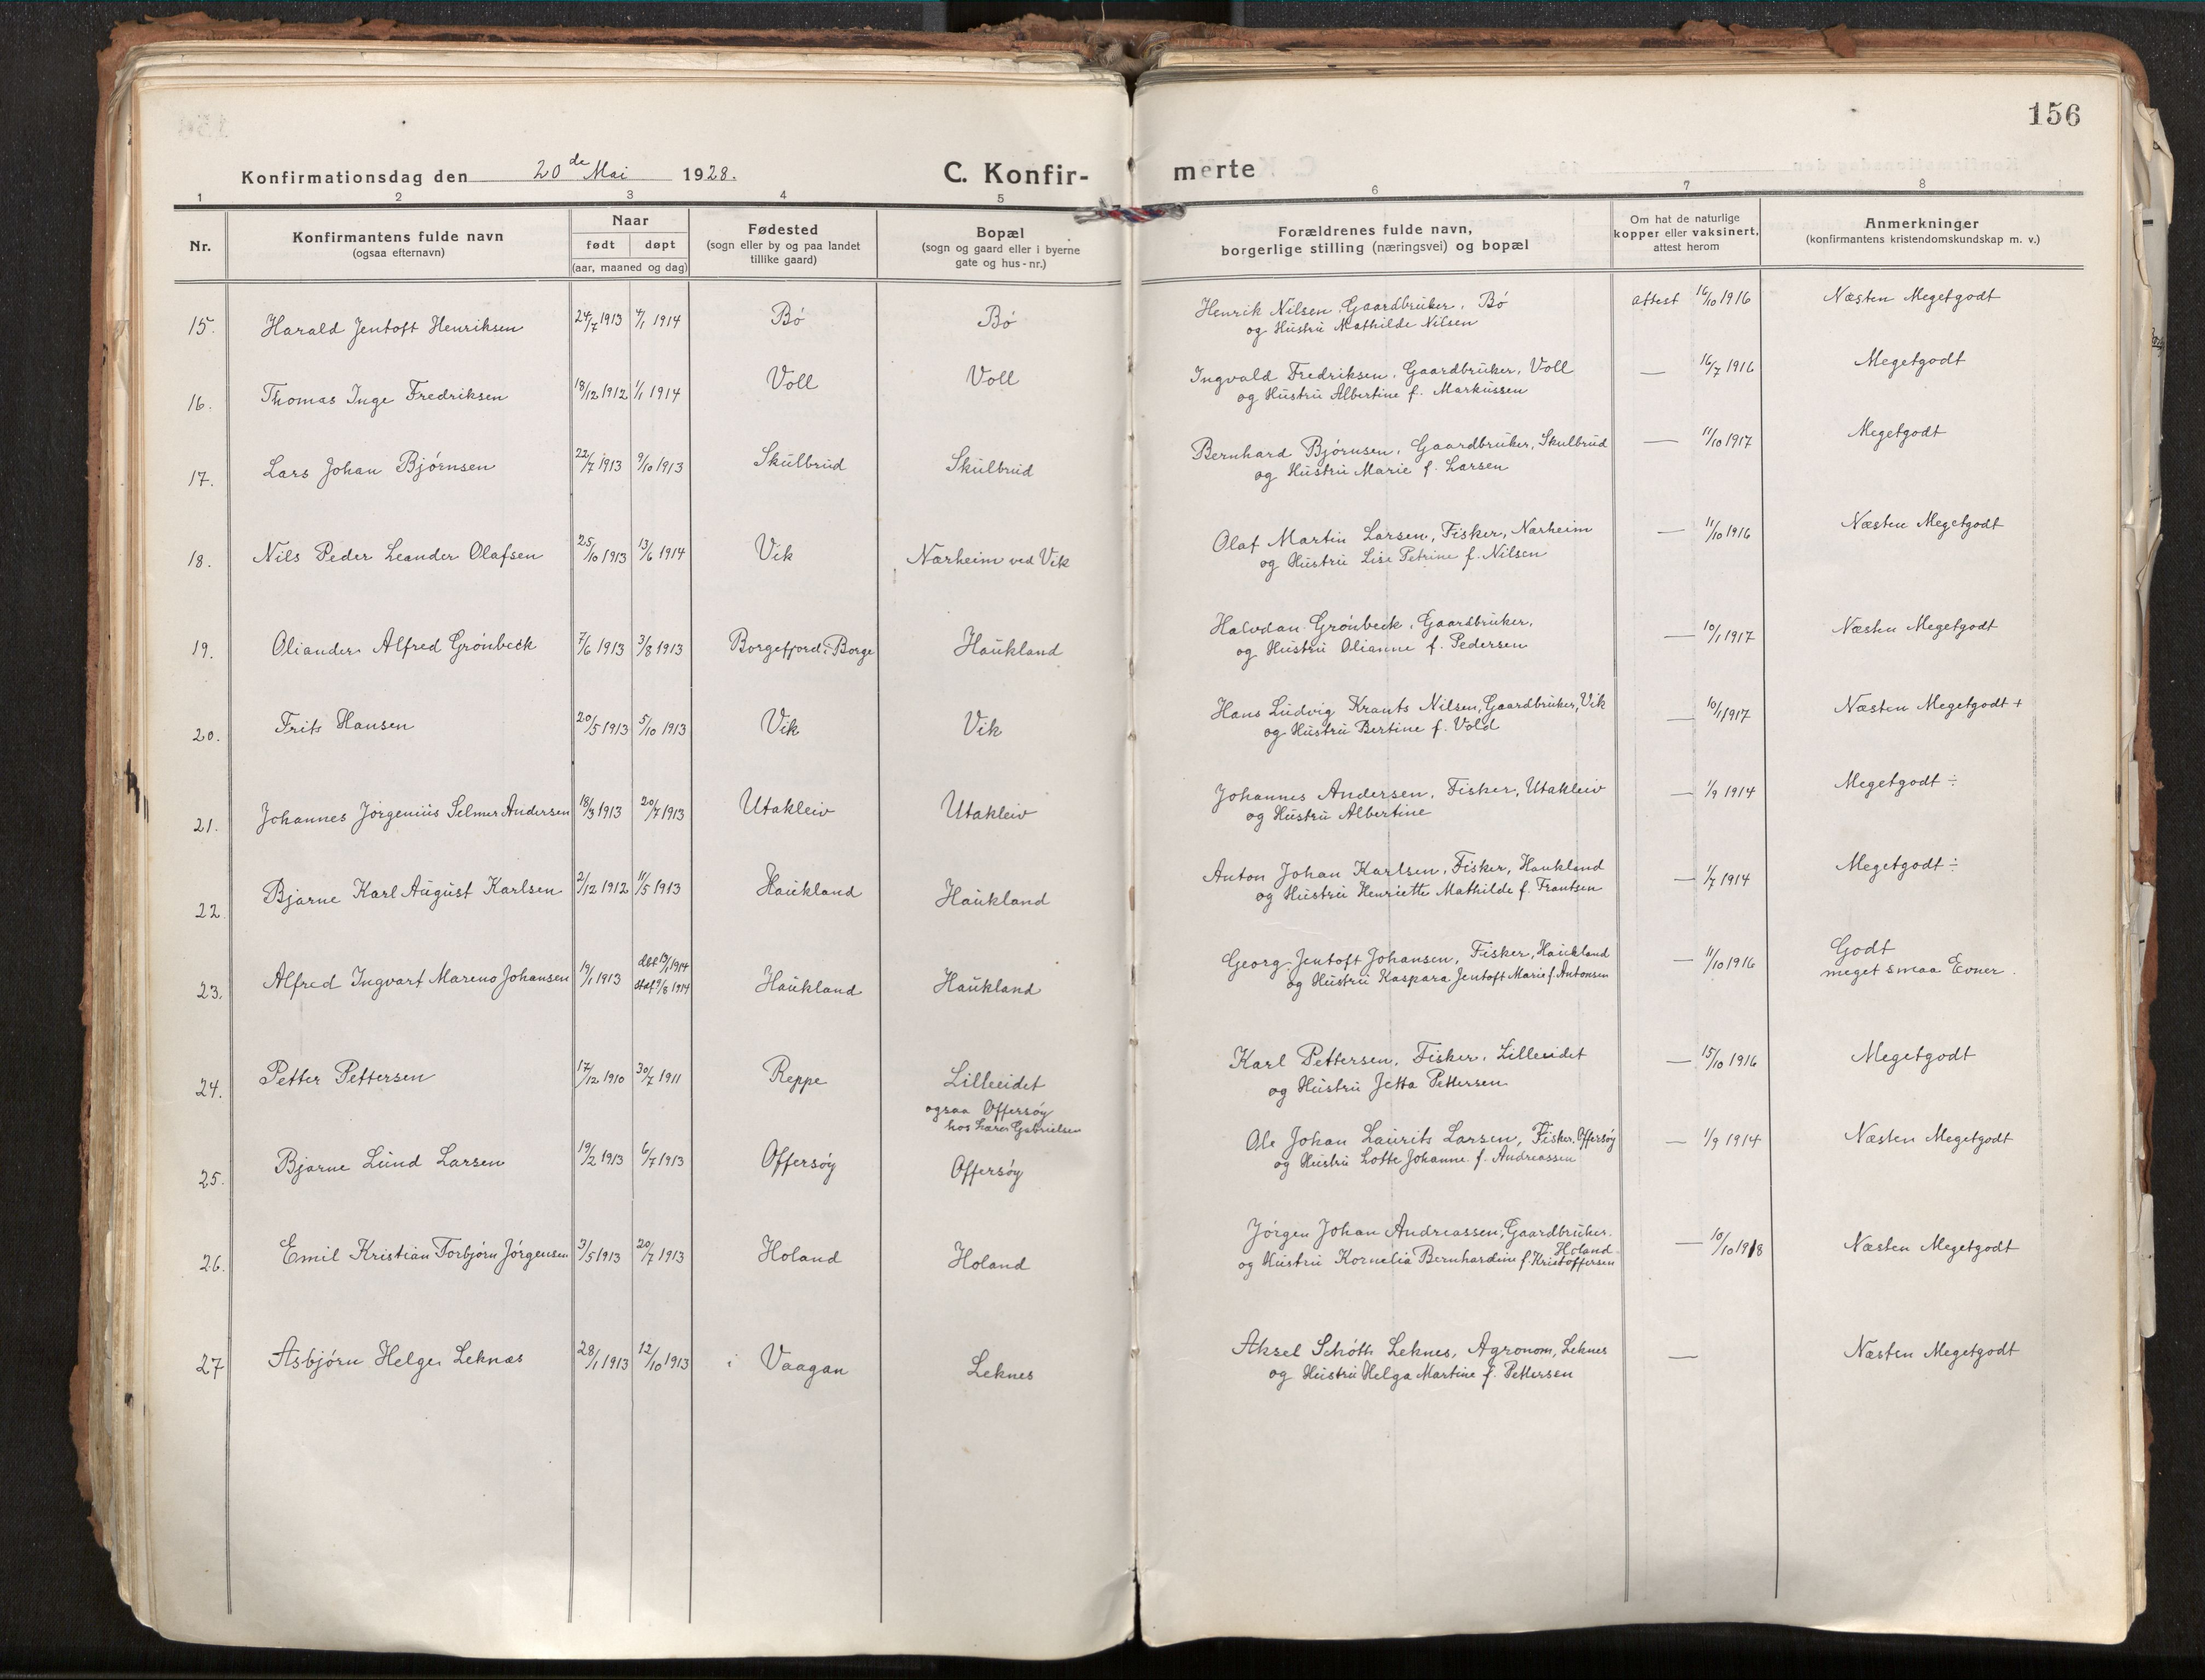 156
Konfirmationsdag den 20de Mai 1928.
C. Konfirmerte
1 2 3 4 5 6 7 8
Nr.
Konfirmantens fulde navn
(ogsaa efternavn)
Naar
født døpt
(aar, maaned og dag)
Fødested
(sogn eller by og paa landet
tillike gaard)
Bopæl
(sogn og gaard eller i byerne
gate og hus-nr.)
Forældrenes fulde navn,
borgerlige stilling (næringsvei) og bopæl
Om hat de naturlige
kopper eller vaksinert,
attest herom
Anmerkninger
(konfirmantens kristendomskundskap m. v.)
15. Harald Jentoft Henriksen 24/7 1913 4/1 1914 Bó Bó Henrik Nilsen, Gaardbruker, Bó attest 16/10 1916 Næsten Megetgodt
og Hustru Mathilde Nilsen
16. Thomas Inge Fredriksen 18/12 1912 1/1 1914 Voll Voll Ingvald Fredriksen, Gaardbruker, Voll — 16/7 1916 Megetgodt
og Hustru Albertine f. Markussen
17. Lars Johan Bjórnsen 22/7 1913 9/10 1913 Skulbrud Skulbrud Bernhard Bjórnsen, Gaardbruker, Skulbrud — 11/10 1917 Megetgodt
og Hustru Marie f. Larsen
18. Nils Peder Leander Olafsen 25/10 1913 13/6 1914 Vik Nærheim ved Vik Olaf Martin Larsen, Fisker, Nærheim — 11/10 1916 Næsten Megetgodt
og Hustru Lise Petrine f. Nilsen
19. Oliander Alfred Grónbeck 7/6 1913 3/8 1913 Borgefjord i Borge Haukland Halvdan Grónbeck, Gaardbruker, — 10/1 1917 Næsten Megetgodt
og Hustru Olianne f. Pedersen
20. Frits Hansen 20/5 1913 5/10 1913 Vik Vik Hans Ludvig Krants Nilsen, Gaardbruker, Vik — 10/1 1917 Næsten Megetgodt +
og Hustru Bertine f. Vold
21. Johannes Jórgenius Selmer Andersen 18/3 1913 20/7 1913 Utakleiv Utakleiv Johannes Andersen, Fisker, Utakleiv — 1/9 1914 Megetgodt ÷
og Hustru Albertine
22. Bjarne Karl August Karlsen 2/12 1912 11/5 1913 Haukland Haukland Anton Johan Karlsen, Fisker, Haukland — 1/7 1914 Megetgodt ÷
og Hustru Henriette Mathilde f. Frantsen
23. Alfred Ingvart Mareno Johansen 19/1 1913 Haukland Haukland Georg Jentoft Johansen, Fisker, Haukland — 11/10 1916 Godt
og Hustru Kaspara Jentoft Marie f. Antonsen meget smaa Evner.
24. Petter Pettersen 17/12 1910 30/7 1911 Reppe Lilleeidet Karl Pettersen, Fisker, Lilleeidet — 15/10 1916 Megetgodt
ogsaa Offersóy og Hustru Jetta Pettersen
hos Lærer Gabrielsen
25. Bjarne Lund Larsen 19/2 1913 6/7 1913 Offersóy Offersóy Ole Johan Laurits Larsen, Fisker, Offersóy — 1/9 1914 Næsten Megetgodt
og Hustru Lotte Johanne f. Andreassen
26. Emil Kristian Torbjórn Jórgensen 3/5 1913 20/7 1913 Holand Holand Jórgen Johan Andreassen, Gaardbruker. — 10/10 1918 Næsten Megetgodt
Holand
og Hustru Kornelia Bernhardine f. Kristoffersen
27 Asbjórn Helge Leknæs 28/1 1913 12/10 1913 i Vaagan Leknes Aksel Schóth Leknes, Agronom, Leknes — Næsten Megetgodt
og Hustru Helga Martine f. Pettersen